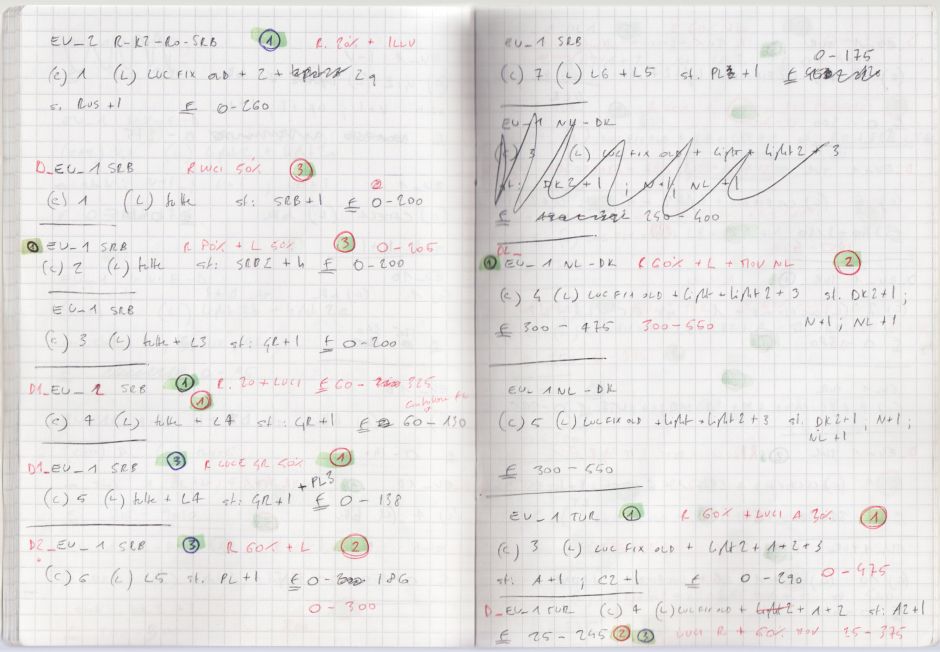 EU_2 R-K2-RO-SRB 1 R. 20% + ILLU
(C) 1 (L) LUC FIX OLD + 2 + 29
st. RUS +1 F 0-260
D_EU_1 SRB R LUCI 50% 3
(C) 1 (L) tutte st: SRB+1 F 0-200
EU_1 SRB R 80% + L 50% 3 0-205
(C) 2 (L) tutte st: SRB2 + F 0-200
EU_1 SRB
(C) 3 (L) tutte + L3 st: GR+1 F 0-200
D1_EU_1 SRB 1 R. 20 + LUCI F 60- 325
1
(C) 4 (L) tutte + L4 st: GR+1 F 60-130
D1_EU_1 SRB 3 R LUCE GR 50% 1
(C) 5 (L) tutte + L4 st: GR+1 + PL3 F 0-138
D2_EU_1 SRB 3 R 60% + L 2
(C) 6 (L) L5 st. PL+1 F 0- 186
0-300
EU_1 SRB 0-175
(C) 7 (L) L6 + L5 st. PL +1 F
EU_1 NL-DK
(C) 3 (L) LUC FIX OLD + light + light 2 + 3
st: DK2+1 ; N+1, NL+1
F 250-400
D2_
1 EU_1 NL-DK R 60% + L + MOV NL 2
(C) 4 (L) LUC FIX OLD + light + light 2 + 3 st. DK2+1 ;
F 300-475 300-550 N+1 ; NL+1
EU_1 NL-DK
(C) 5 (L) LUC FIX OLD + light + light 2 + 3 st. DK2+1, N+1 ;
NL+1
F 300-550
EU_1 TUR 1 R 60% + LUCI A 30% 1
(C) 3 (L) LUC FIX OLD + light 2 + 1 + 2 + 3
st: A+1 ; C2+1 F 0-290 0-475
D_EU_1 TUR (C) 4 (L) LUC FIX OLD + light 2 + 1 + 2 st: A2+1
F 25-245 2 3 LUCI R + 60% MOV 25-375